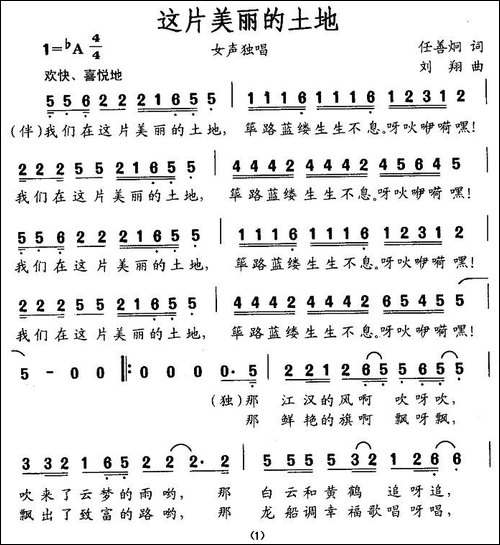 这片美丽的土地
1=♭A 4/4 女声独唱 任善炯 词
欢快、喜悦地 刘翔 曲
5 5 6 2 2 2 1 6 5 5 | 1 1 1 6 1 1 1 6 1 2 3 1 2 |
(伴)我们在这片美丽的土地, 筚路蓝缕生生不息。呀吙咿嗬嘿!
2 2 2 5 5 2 2 1 6 5 5 | 4 4 4 2 4 4 4 2 4 5 6 4 5 |
我们在这片美丽的土地, 筚路蓝缕生生不息。呀吙咿嗬嘿!
5 5 6 2 2 2 1 6 5 5 | 1 1 1 6 1 1 1 6 1 2 3 1 2 |
我们在这片美丽的土地, 筚路蓝缕生生不息。呀吙咿嗬嘿!
2 2 2 5 5 2 2 1 6 5 5 | 4 4 4 2 4 4 4 2 6 5 4 5 5 |
我们在这片美丽的土地, 筚路蓝缕生生不息。呀吙咿嗬嘿!
5 - 0 0 ‖: 0 0 0 0 | 0 0 0· 5 | 1 2 2 1 6 2 5 6 5 |
(独)那 江汉的风啊 吹呀吹,
那 鲜艳的旗啊 飘呀飘,
3 3 2 1 6 5 2 2 2· 2 | 5 5 5 2 1 6 1 5 6 1 |
吹来了云梦的雨哟, 那 白云和黄鹤 追呀追,
飘出了致富的路哟, 那 龙船调幸福歌唱呀唱,
(1)